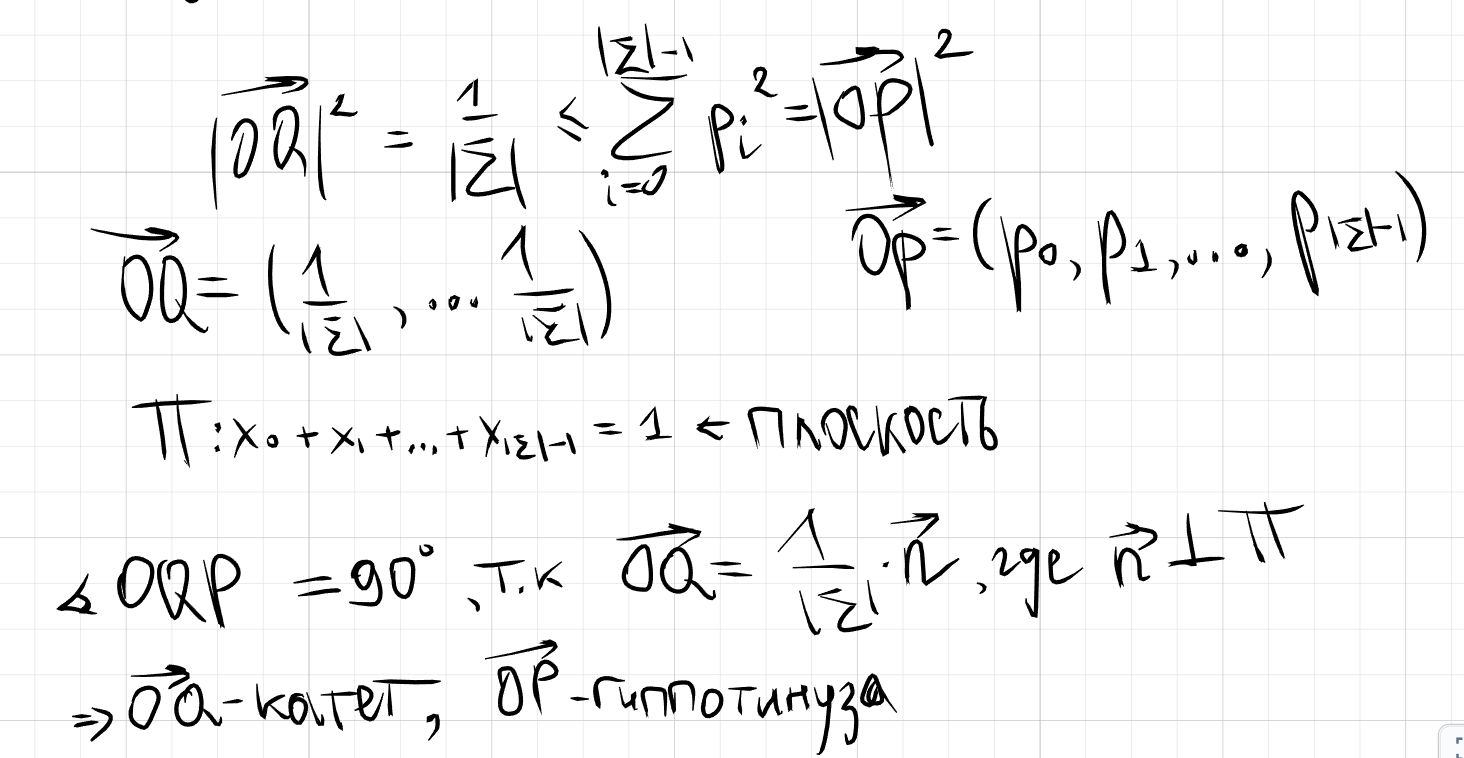 |OQ⃗|² = 1/|Σ| ≤ Σ_{i=0}^{|Σ|-1} pᵢ² = |OP⃗|²
OQ⃗ = (1/|Σ|, ... 1/|Σ|) Op⃗ = (p₀, p₁, ..., p_{|Σ|-1})
П: x₀ + x₁ + ... + x_{|Σ|-1} = 1 ← плоскость
∡ OQP = 90°, т.к OQ⃗ = 1/|Σ| · n⃗, где n⃗ ⊥ П
⇒ OQ⃗ - катет, OP⃗ - гиппотинуза